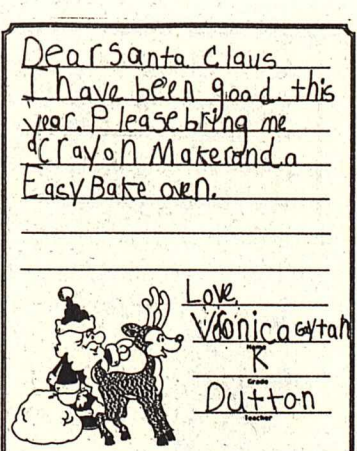 Dear Santa Claus
I have been good. this
year. Please bring me
a Crayon Maker and a
Easy Bake oven.
Love
Veronica Gaytan
Name
K
Grade
Dutton
Teacher